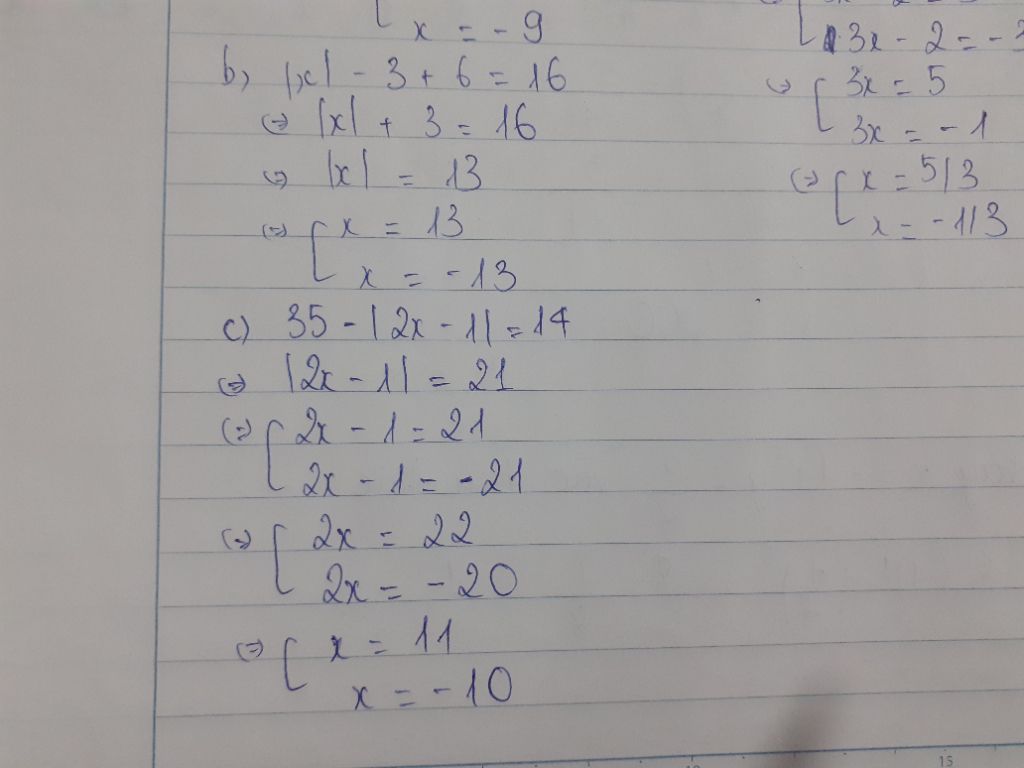 x = -9
b, |x| - 3 + 6 = 16
(=) |x| + 3 = 16
(=) |x| = 13
(=) [ x = 13
x = -13
c) 35 - |2x - 1| = 14
(=) |2x - 1| = 21
(=) [ 2x - 1 = 21
2x - 1 = -21
(=) [ 2x = 22
2x = -20
(=) [ x = 11
x = -10
3x - 2 = -3
(=) [ 3x = 5
3x = -1
(=) [ x = 5/3
x = -1/3
15